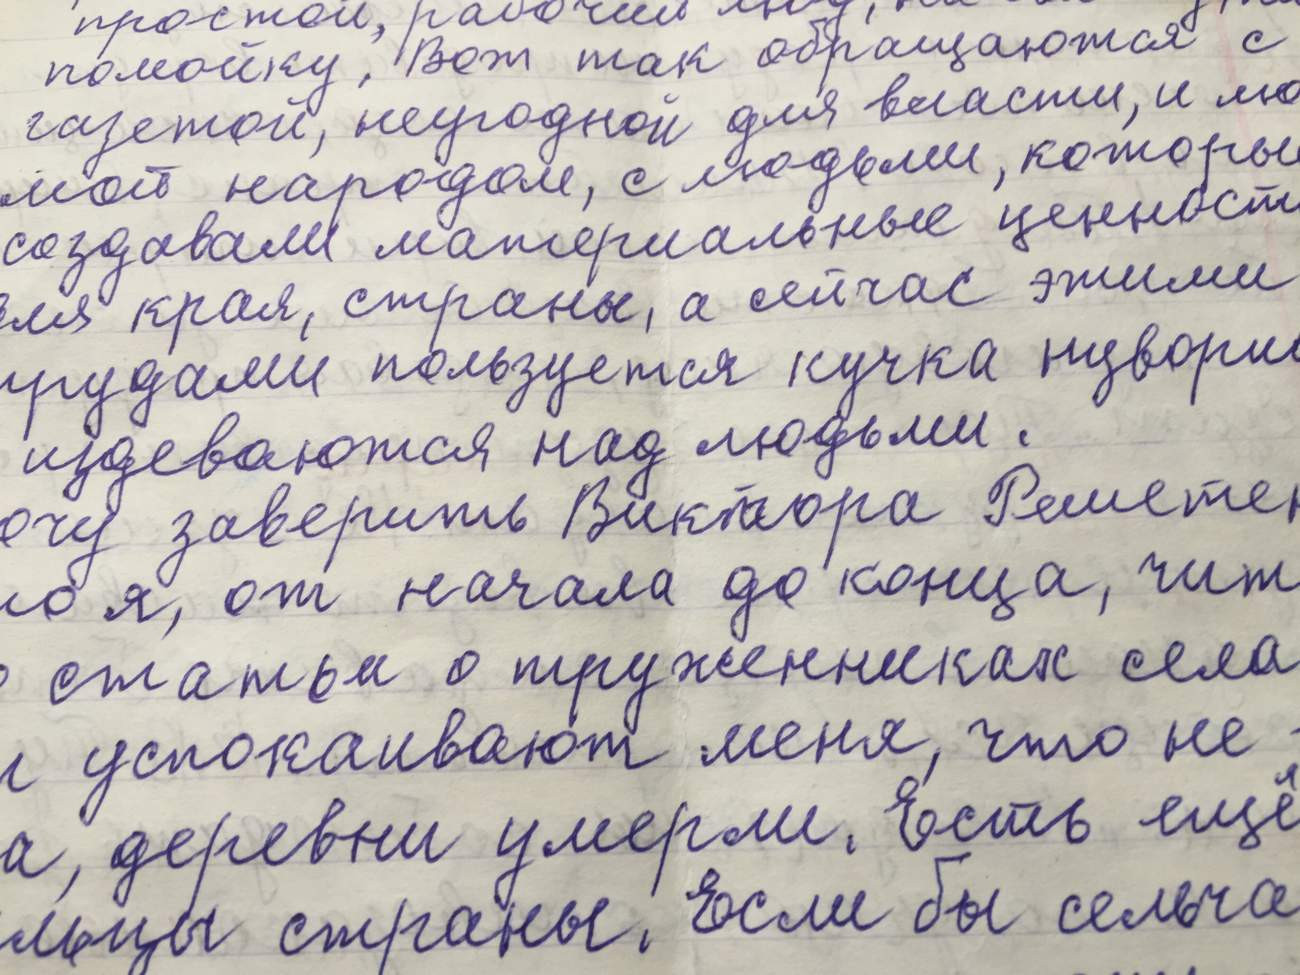 простой, рабочий люд, на
помойку. Вот так обращаются с
газетой, неугодной для власти, и лю
мой народом, с людьми, которы
создавали материальные ценност
для края, страны, а сейчас этими
трудами пользуется кучка нувори
издеваются над людьми.
очу заверить Виктора Решетен
то я, от начала до конца, чит
статьи о труженниках села
и успокаивают меня, что не
а, деревни умерли. Есть ещё
льцы страны. Если бы сельча